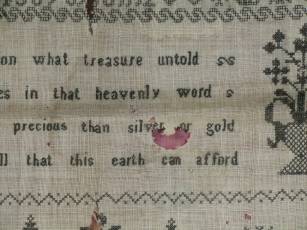 on what treasure untold
es in that heavenly word
precious than silver or gold
ll that this earth can afford